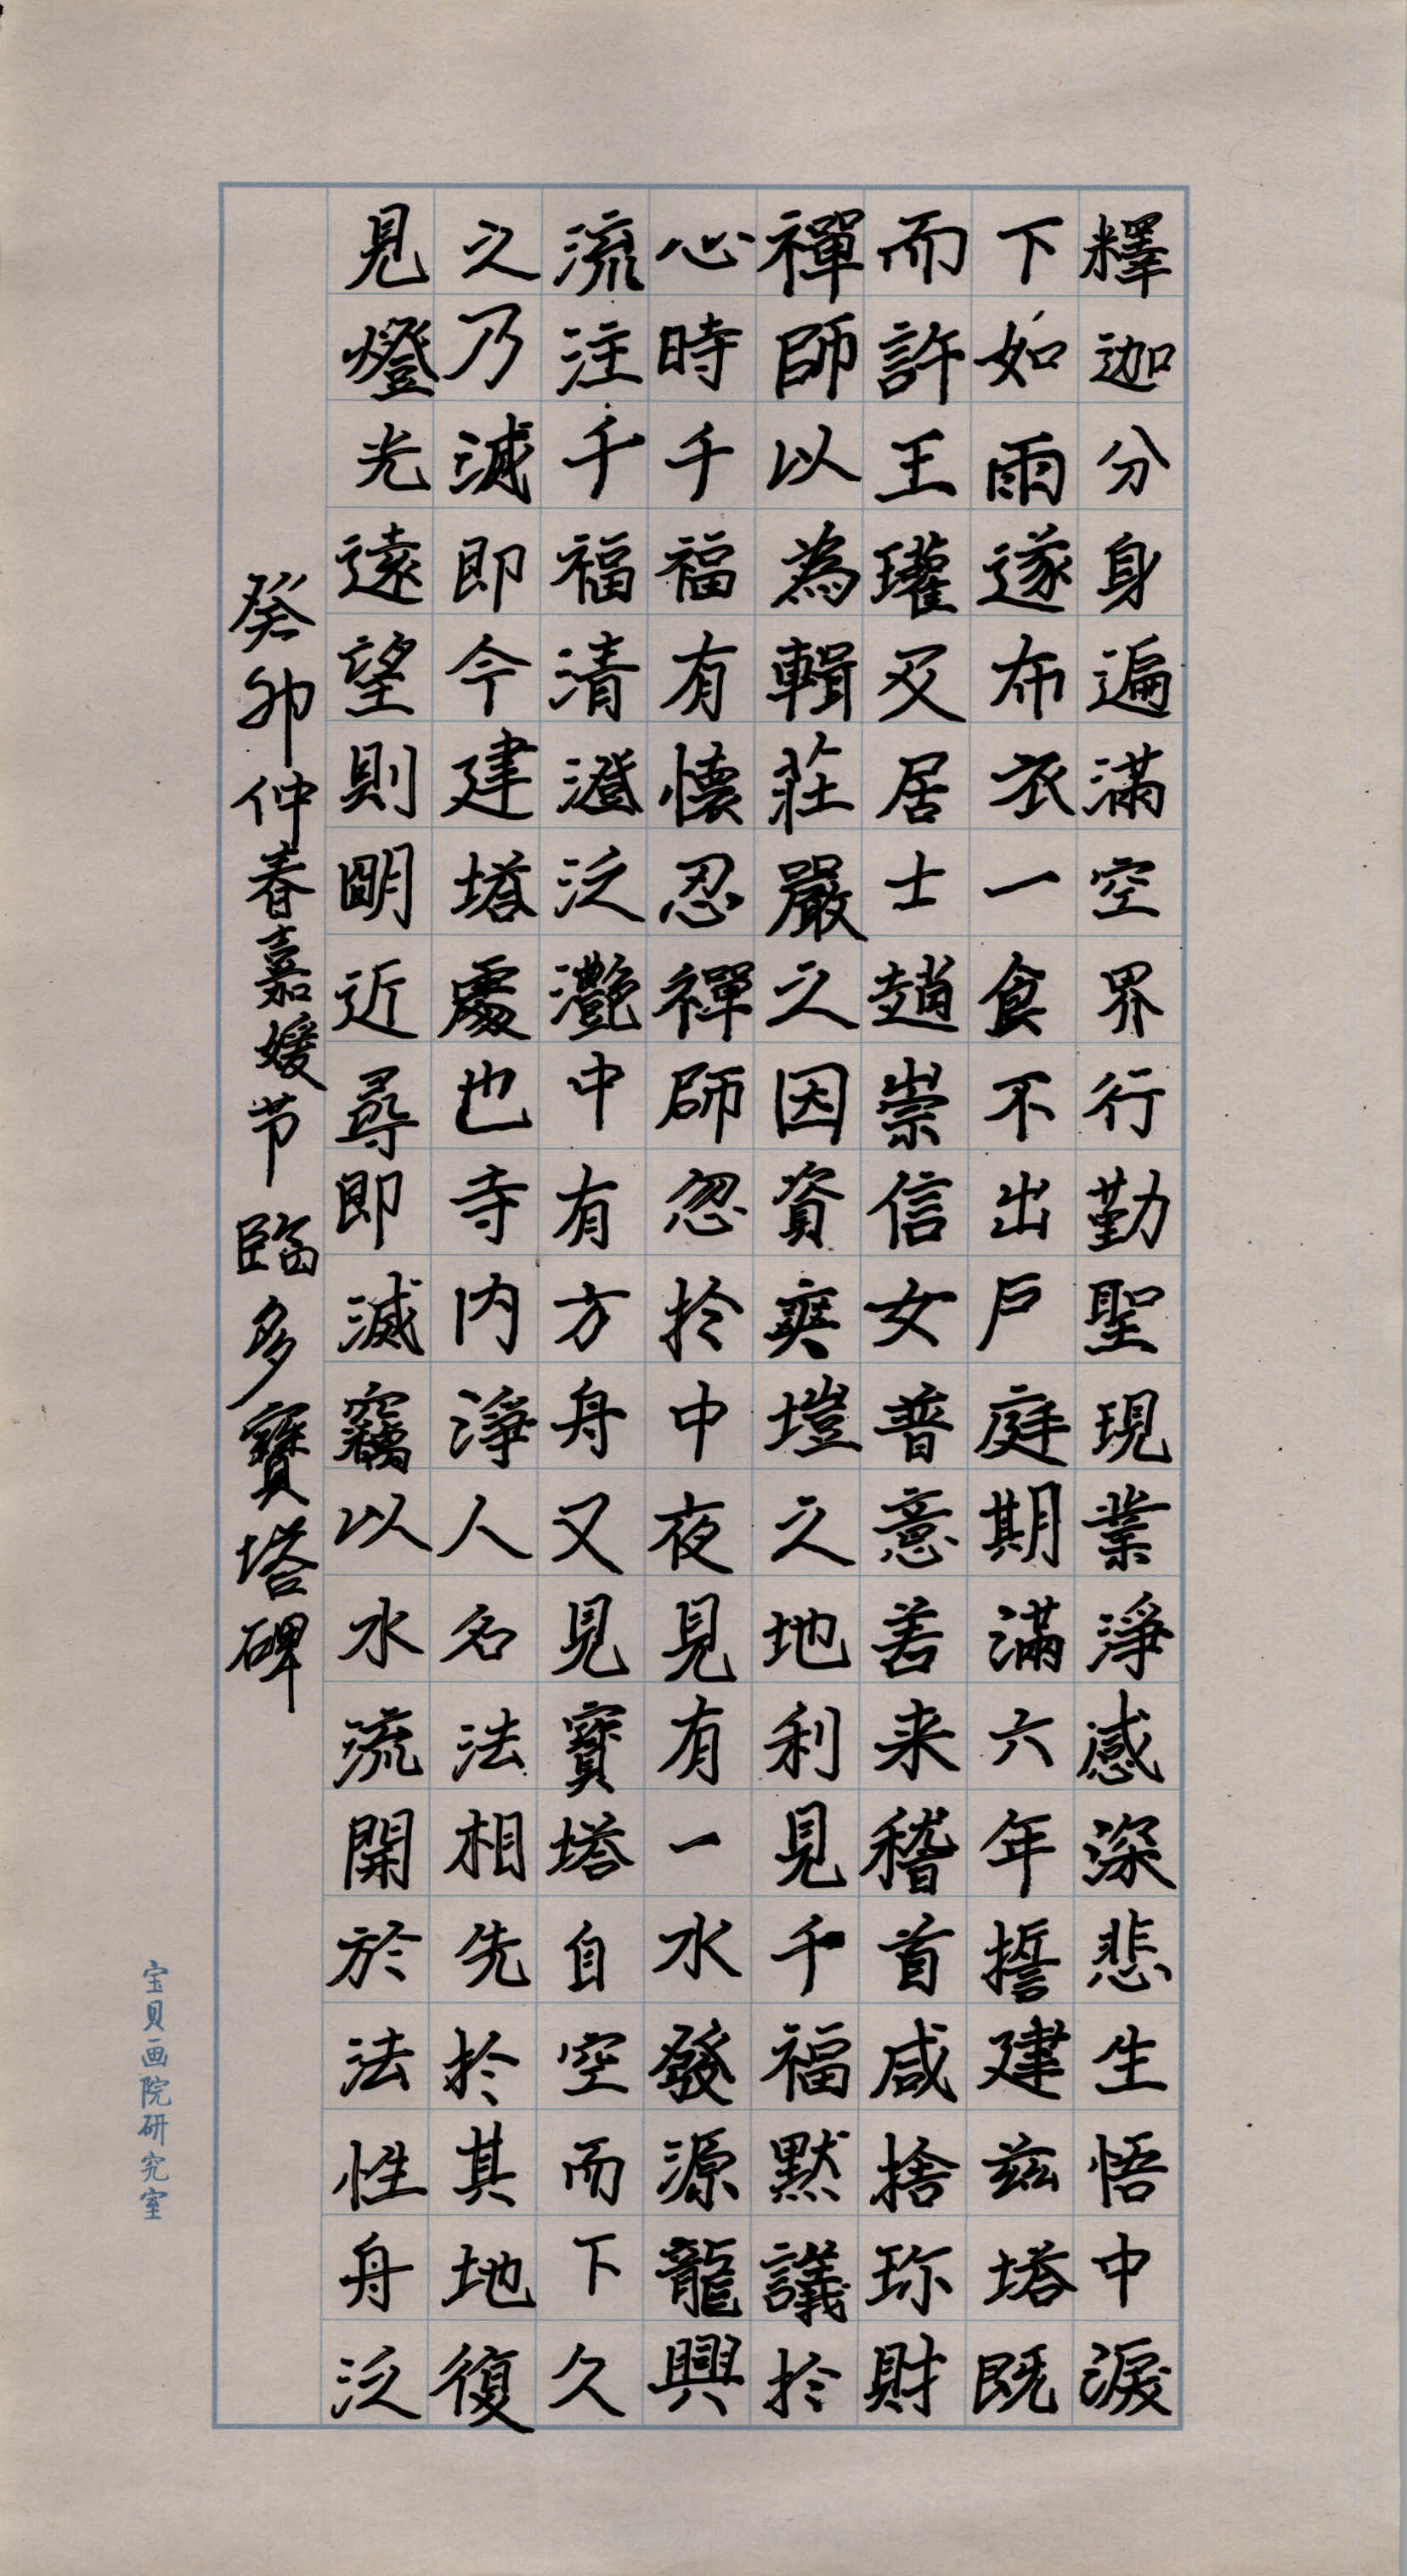 釋迦分身遍滿空界行勤聖現業淨感深悲生悟中淚
下如雨遂布衣一食不出戶庭期滿六年誓建茲塔既
而許王瓘及居士趙崇信女普意善来稽首咸捨珎財
禪師以為輯莊嚴之因資爽塏之地利見千福默議扵
心時千福有懷忍禪師忽扵中夜見有一水發源龍興
流注千福清澄泛灔中有方舟又見寳塔自空而下久
之乃滅即今建塔處也寺内淨人名法相先扵其地復
見燈光遠望則朙近尋即滅竊以水流開於法性舟泛
癸卯仲春嘉媛节臨多寶塔碑
宝贝画院研究室